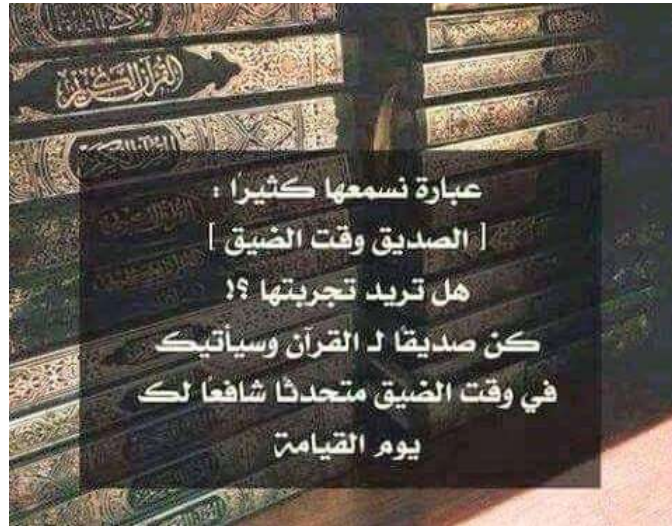 القرآن الكريم
عبارة نسمعها كثيرًا :
[ الصديق وقت الضيق ]
هل تريد تجربتها ؟!
كن صديقًا لـ القرآن وسيأتيك
في وقت الضيق متحدثًا شافعًا لك
يوم القيامة